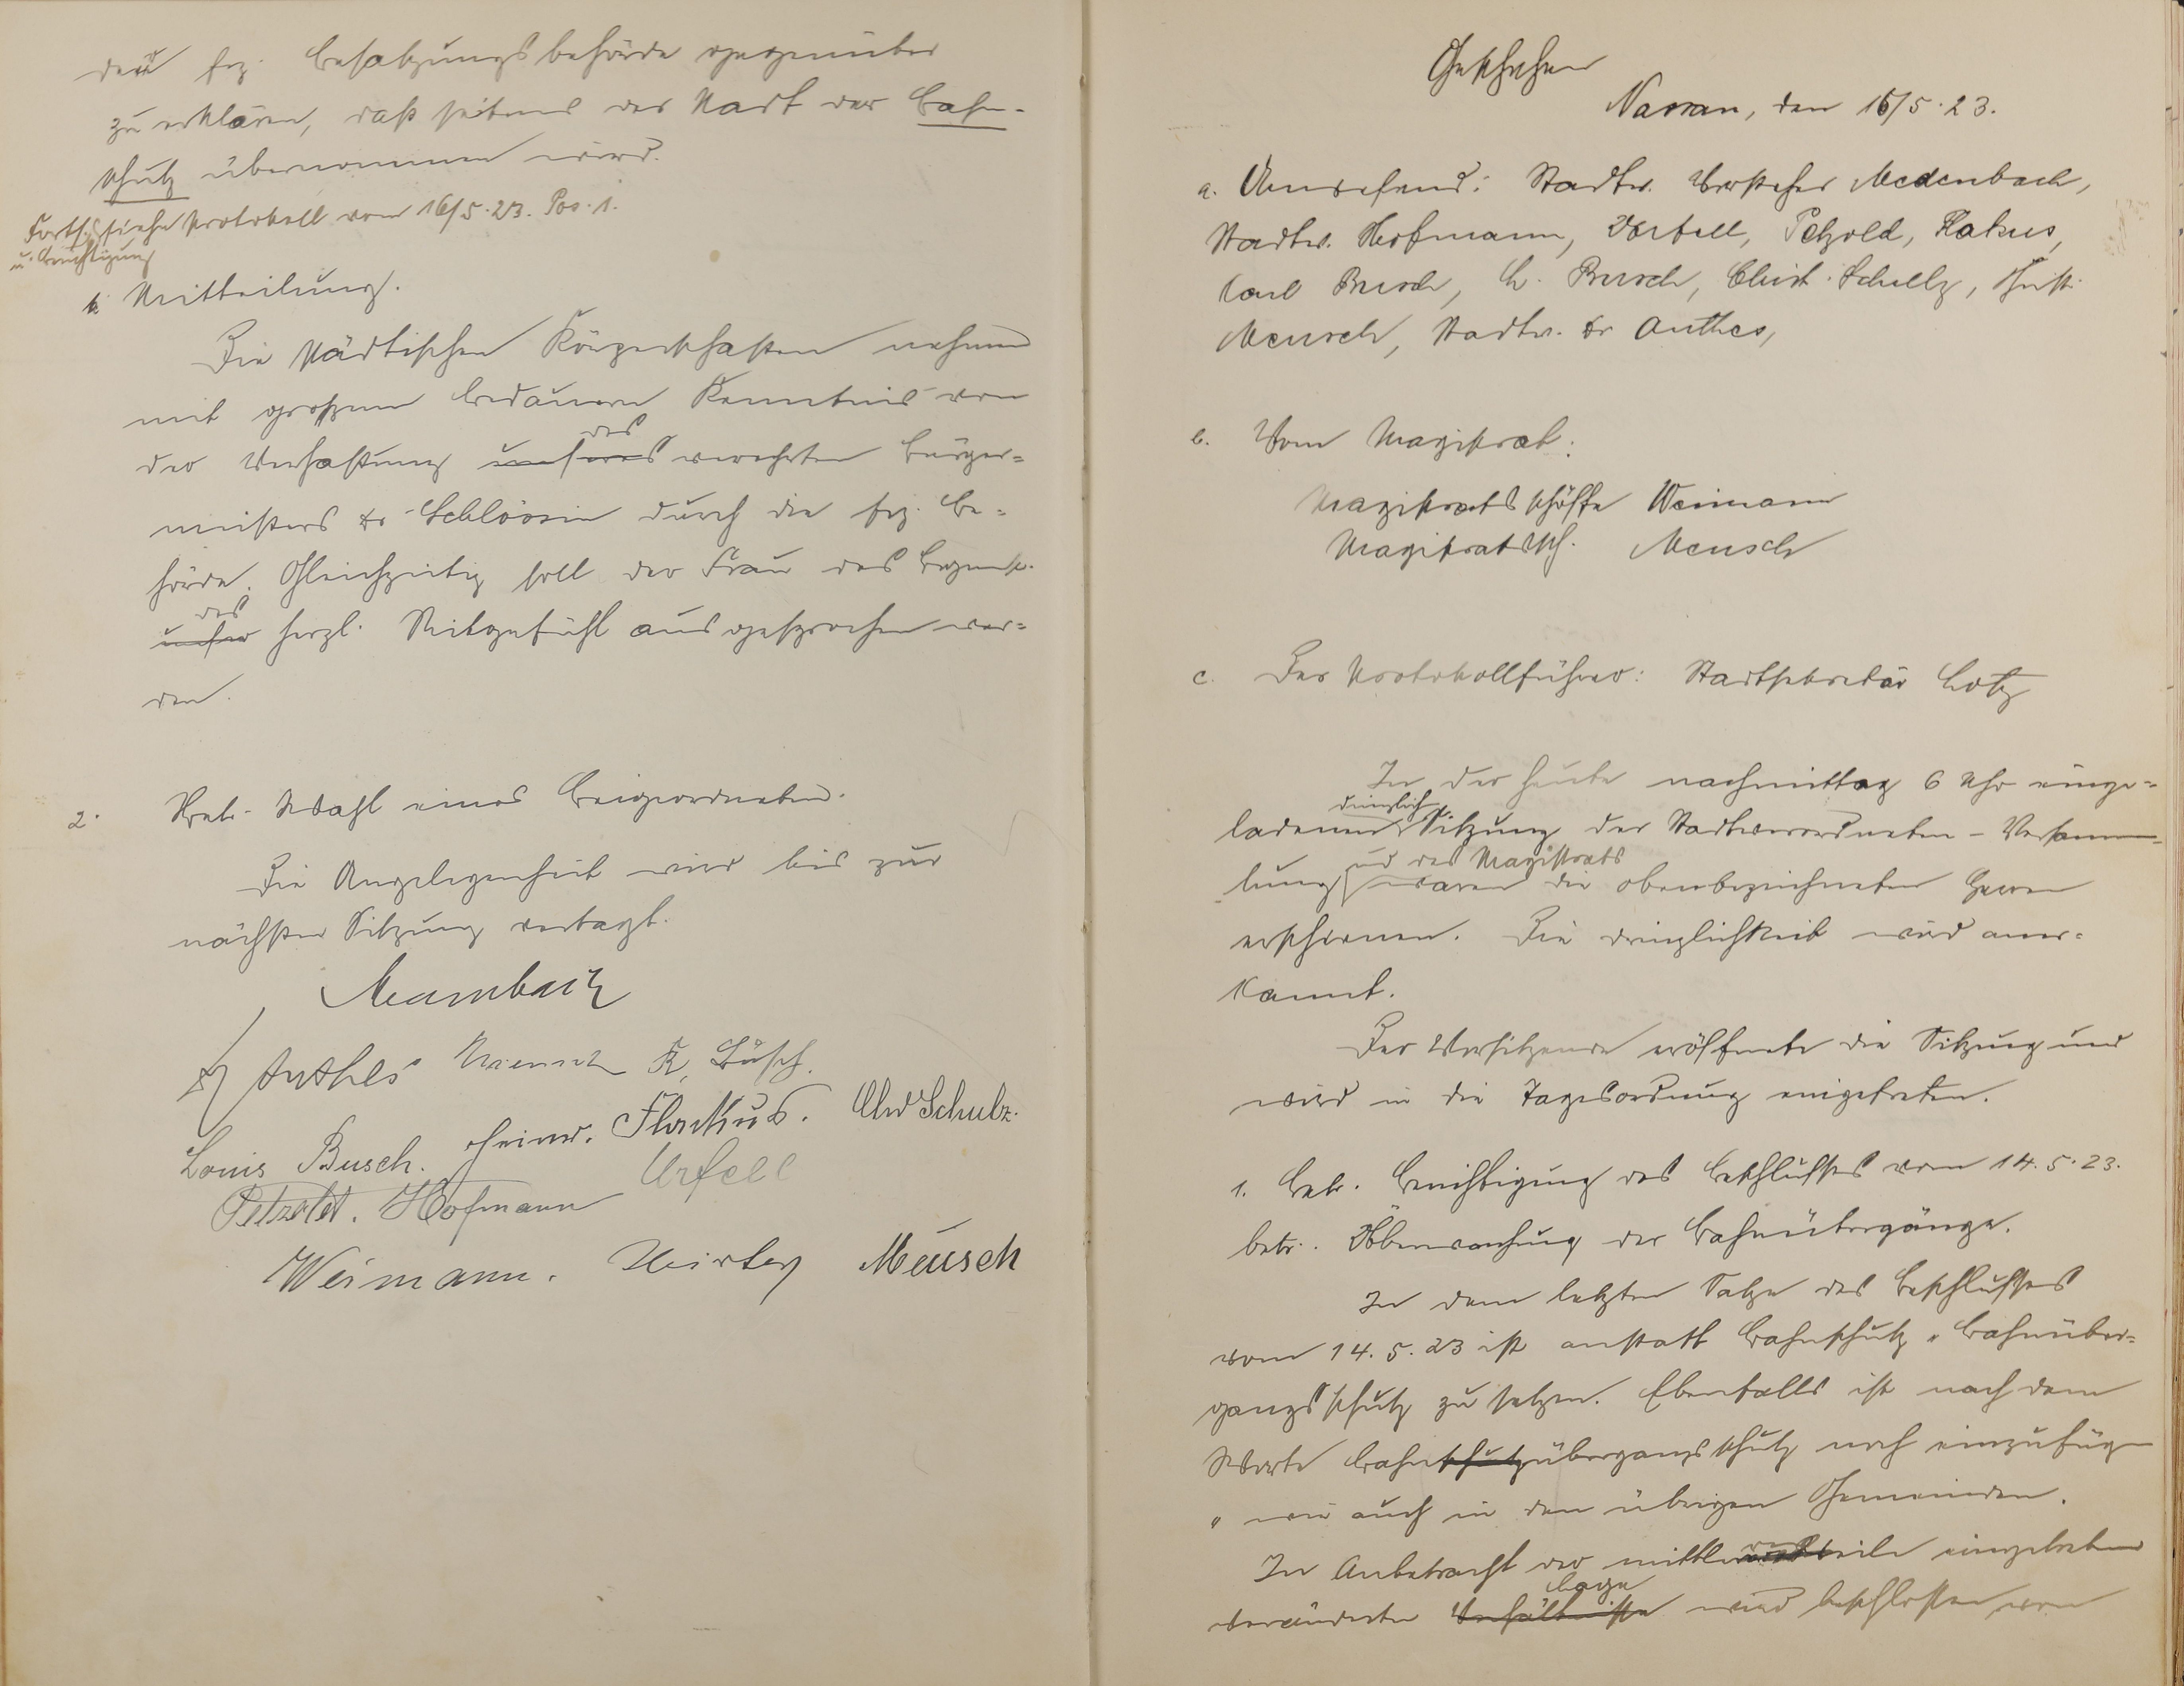 der frz. Besatzungsbehörde gegenüber
zu erklären, daß seitens der Stadt der Bahn-
schutz übernommen wird.
Forts. siehe Protokoll vom 16/5.23. Pos. 1.
u. Berichtigung
Mitteilung.
Die städtischen Körperschaften nehmen
mit großem Bedauern Kenntnis von
der Verhaftung unseres des verehrten Bürger=
meisters Dr Schlössin durch die frz. Be=
hörde. Gleichzeitig soll der Frau des Bürgermstr.
unser das herzl. Mitgefühl ausgesprochen wer=
den.
2. Betr. Wahl eines Beigeordneten.
Die Angelegenheit wird bis zur
nächsten Sitzung vertagt.
Anthes K. Busch.
Louis Busch. Heinr. Flankus. Chr Schulz.
Petzoldt. Hofmann Urfell
Weimann. Meusch
Geschehen
Nassau, den 16/5.23.
a. Anwesend: Stadtv. Vorsteher Medenbach,
Stadtv. Hofmann, Urfell, Petzold, Flakus,
Carl Busch, L. Busch, Christ. Schulz,
Meusch, Stadtv. Dr Anthes,
b. Vom Magistrat:
Magistratsschöffe Weimann
Magistratssch. Meusch
c. Der Protokollführer: Stadtsekretär Lotz
In der heute nachmittag 6 Uhr einge=
ladenen dringlich. Sitzung der Stadtverordneten-Versamm=
lung und des Magistrats waren die obenbezeichneten Herren
erschienen. Die Dringlichkeit wird aner=
kannt.
Der Vorsitzende eröffnete die Sitzung und
wird in die Tagesordnung eingetreten.
1. Betr. Berichtigung des Beschlusses vom 14.5.23.
betr. Überwachung der Bahnübergänge.
In dem letzten Satze des Beschlusses
vom 14.5.23 ist anstatt Bahnschutz „Bahnüber=
gangsschutz zu setzen. Ebenfalls ist nach dem
Worte Bahnschutzübergangsschutz noch einzufügen
„wie auch in den übrigen Gemeinden.
In Anbetracht der mittlerweile eingetretenen
veränderten Verhältnisse Lage wird beschlossen, von